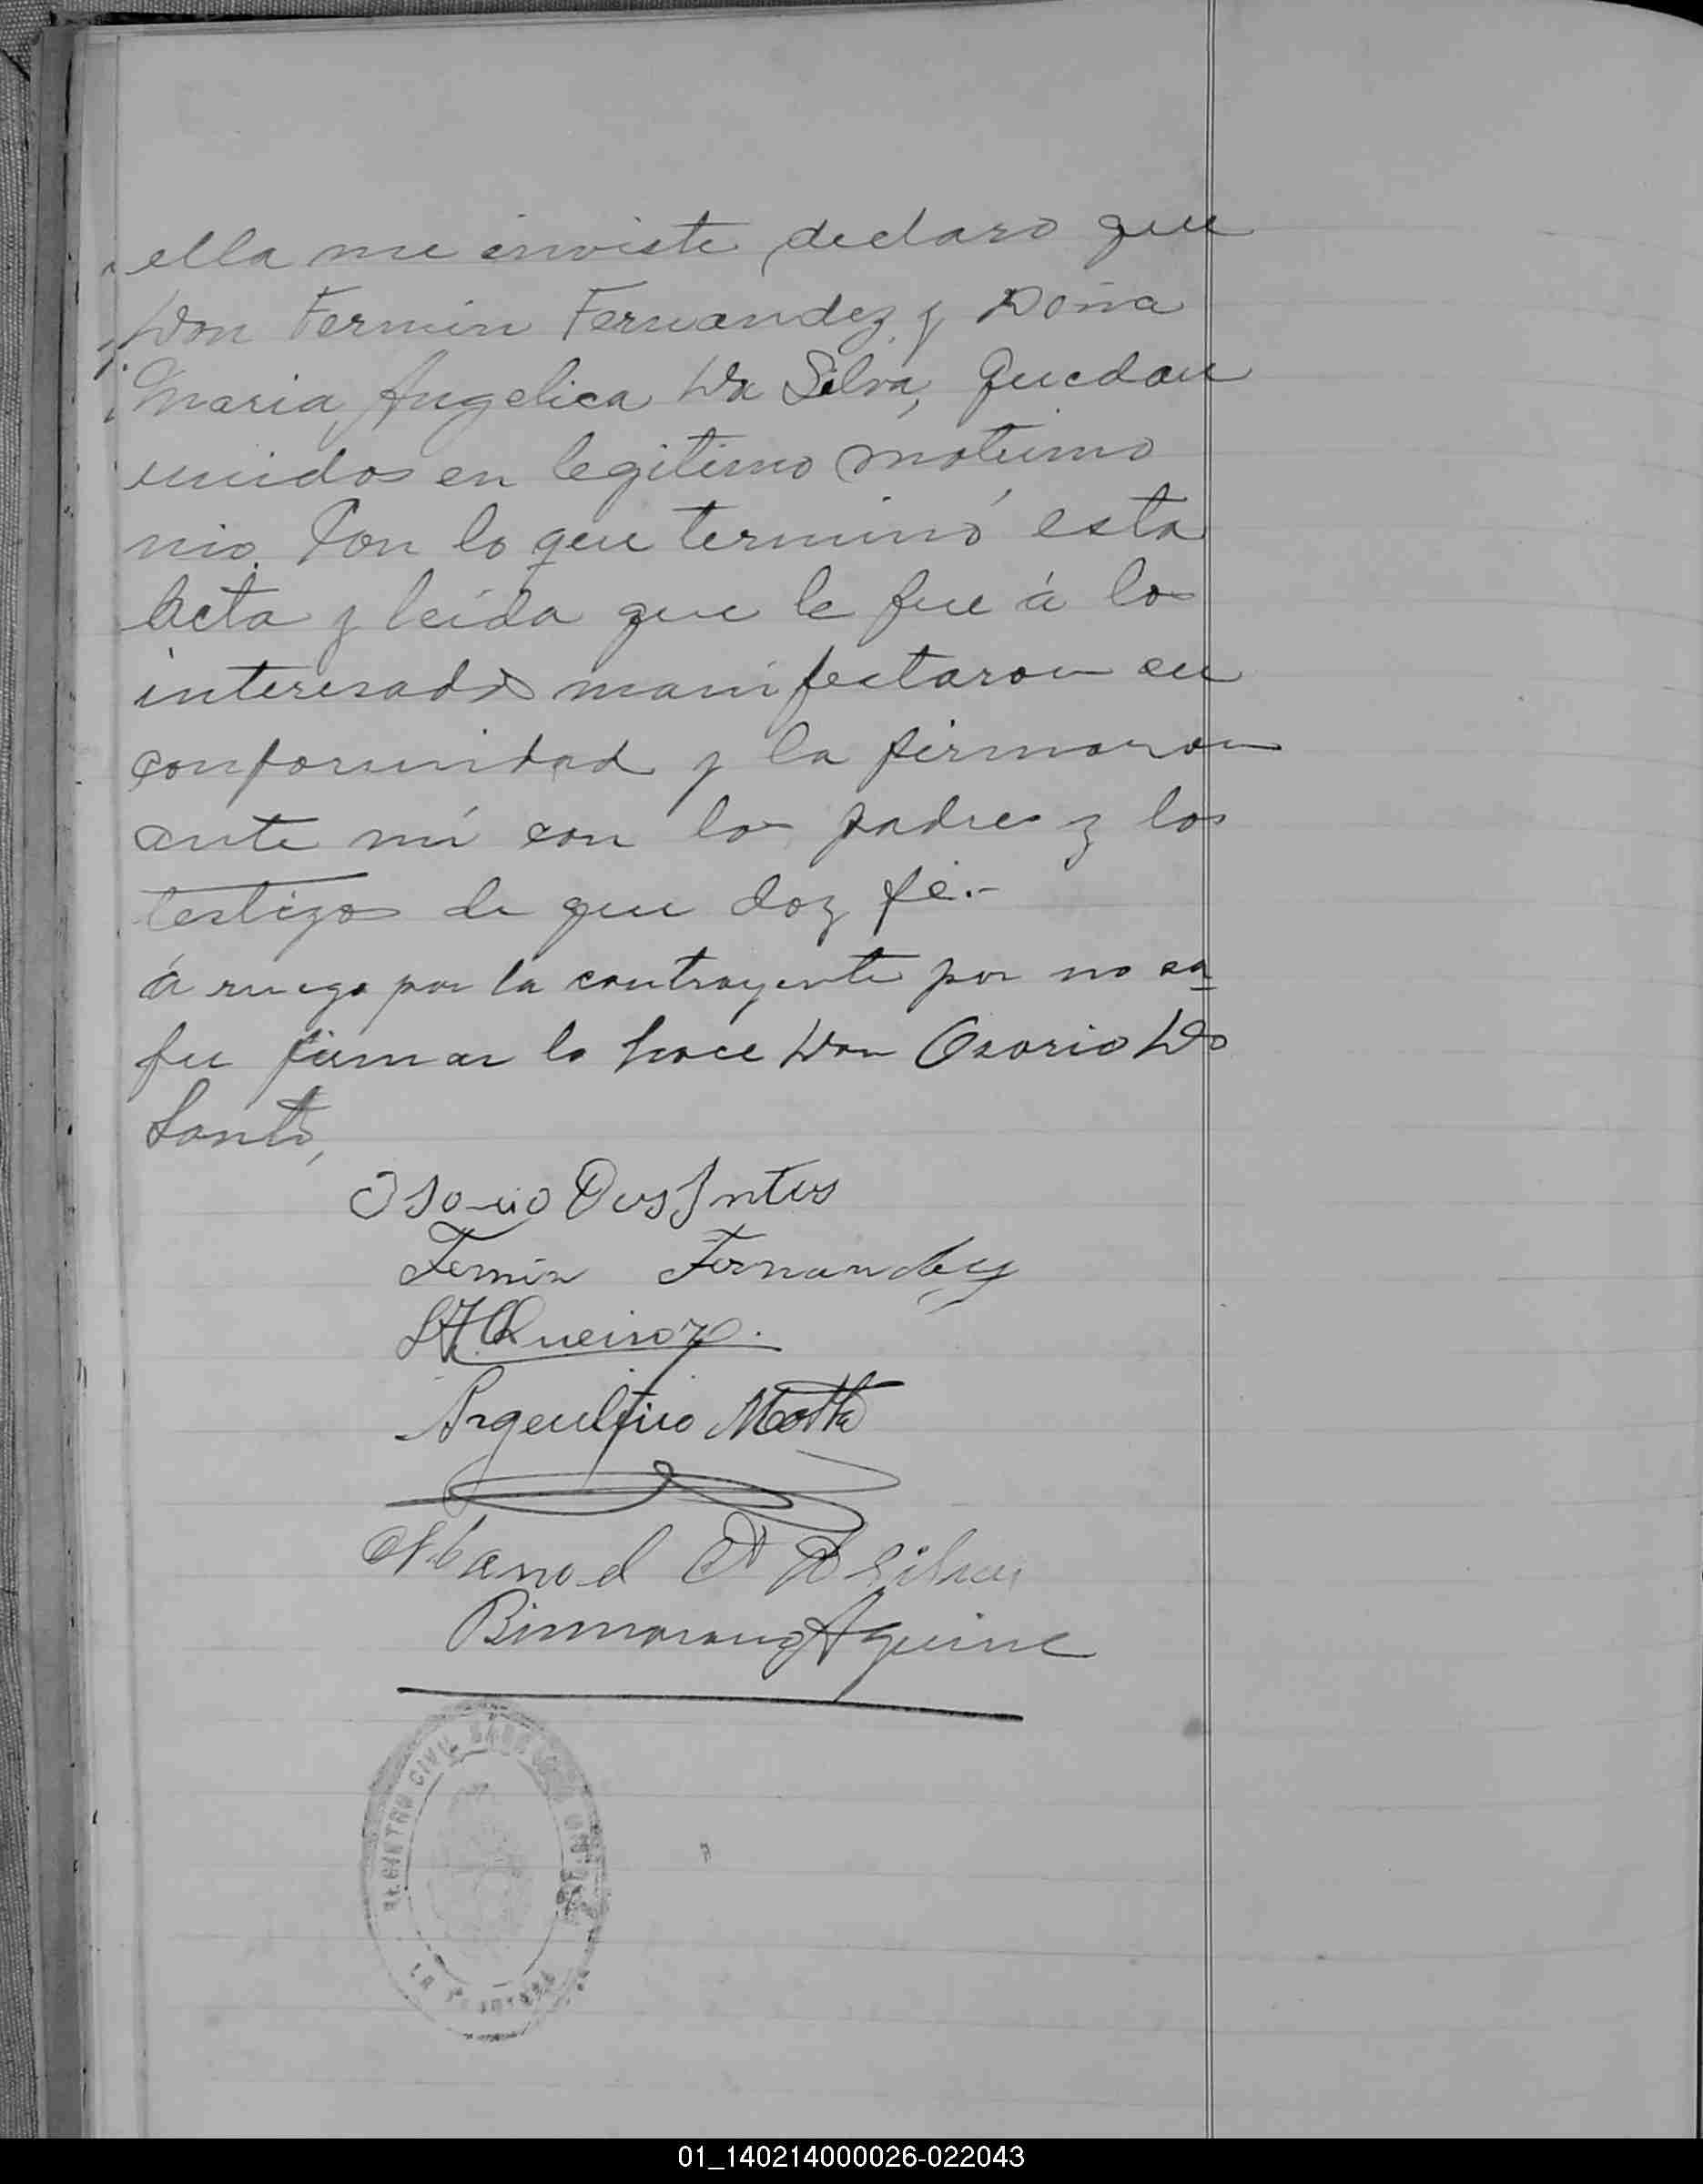 ella me inviste, declaro que
Don Fermin Fernandez y Doña
Maria Angelica Da Silva, quedan
unidos en legitimo matrimo
nio. Con lo que terminó esta
acta y leída que le fue á los
interesados manifestaron su
conformidad y la firmaron
ante mí con los padres y los
testigos de que doy fé.-
á ruego por la contrayente por no sa
ber firmar lo hace Don Osorio Do
Santo,
Osorio Dos Santos
Fermin Fernandez
Queiroz.
Argentino Motta
Manoel Silva
Aguirre
REGISTRO CIVIL
LA
01_140214000026-022043